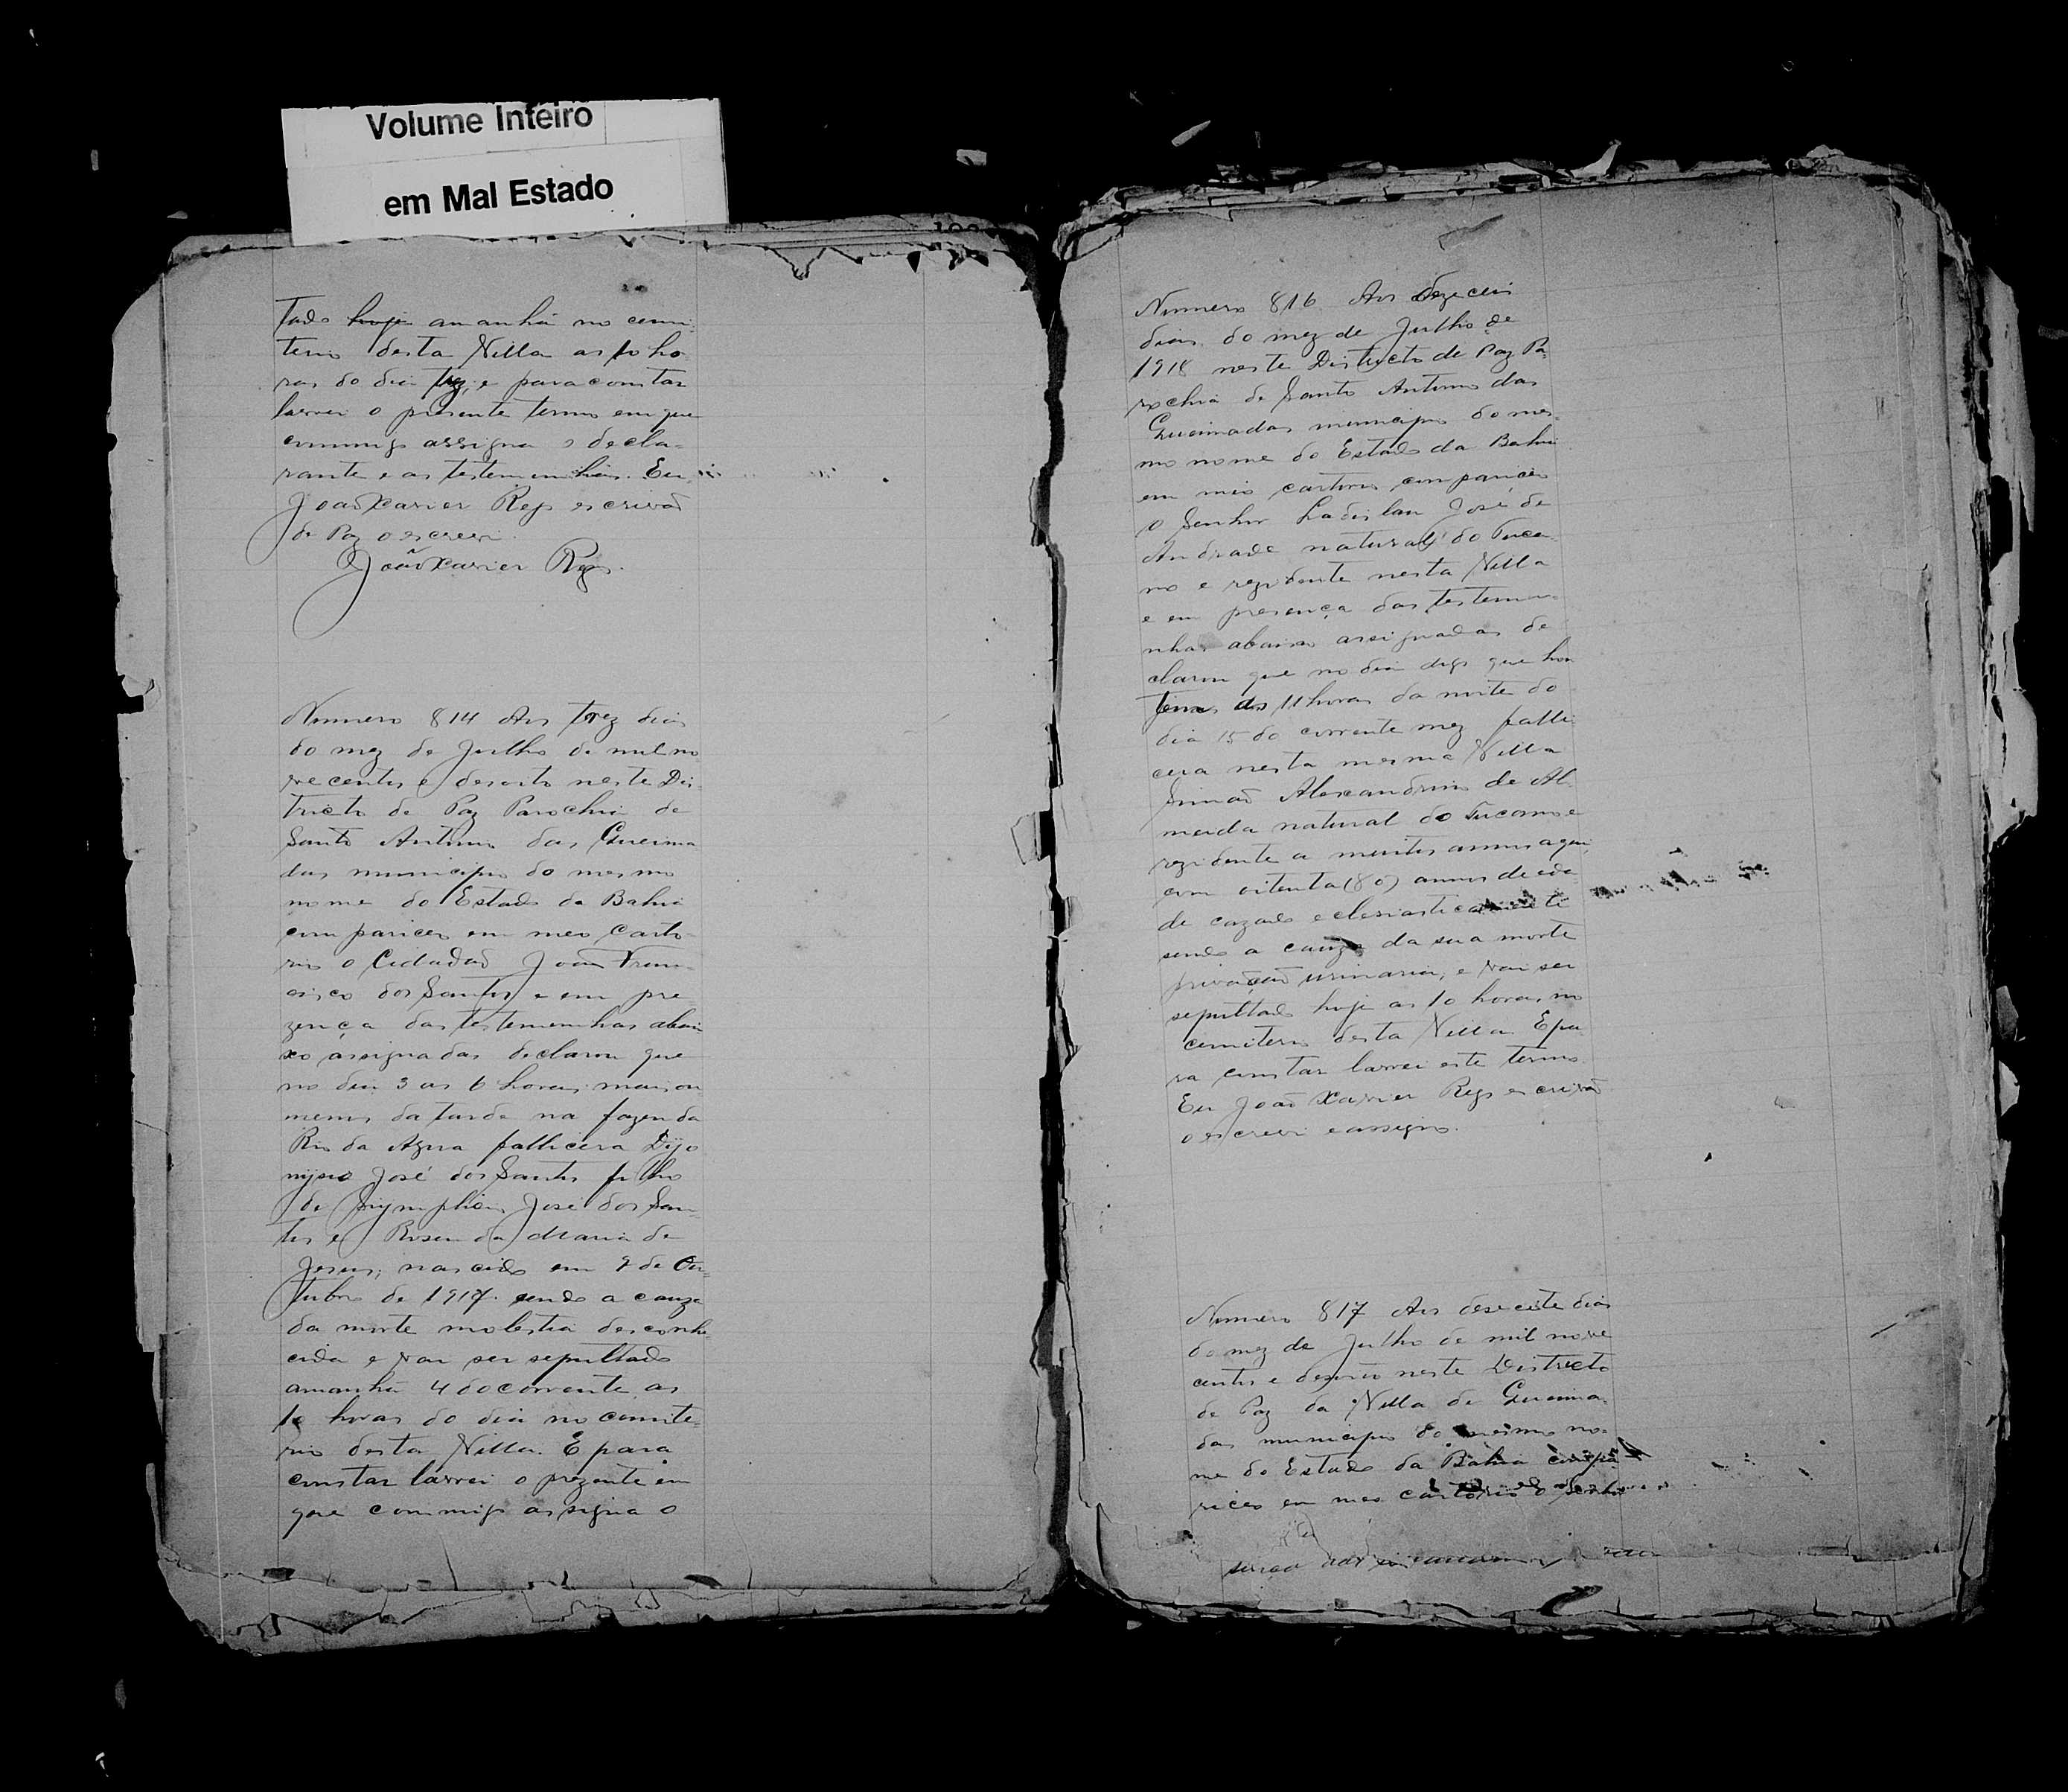 Volume Inteiro
em Mal Estado
tado hoje amanhã no cemi
terio desta Villa as 10 ho
ras do dia trez, e para constar
lavrei o presente termo em que
commigo assigna o decla-
rante e as testemunhas. Eu
João Xavier Rego escrivaõ
de Paz o escrevi.
João Xavier Rego.
Numero 814 Aos trez dias
do mez de Julho de mil no
vecentos e desoito neste Dis-
tricto de Paz Parochia de
Santo Antonio das Queima
das municipio do mesmo
nome do Estado da Bahia
compariceo em meo Carto-
rio o Cidadaõ João Fran-
cisco dos Santos e em pre-
zença das testemunhas abai
xo assignadas declarou que
no dia 3 as 6 horas mais ou
menos da tarde na fazenda
Rio da Agua fallicera Dijo
nysio José dos Santos filho
de José dos San-
tos e Rosenda Maria de
Jesus, nascido em 9 de Ou-
tubro de 1917. sendo a cauza
da morte molestia desconhe
cida e vai ser sepultado
amanhã 4 do corrente as
10 horas do dia no cemite-
rio desta Villa. E para
constar lavrei o prezente em
que commigo assigna o
Numero 816 Aos dezeceis
dias do mez de Julho de
1918 neste Districto de Paz Pa-
rochia de Santo Antonio das
Queimadas municipio do mes-
mo nome do Estado da Bahia
em meo cartorio compariceo
o Senhor Ladislau José de
Andrade natural do Tuca-
no e rezidente nesta Villa
e em presença das testemu-
nhas abaixo assignadas de
clarou que no dia digo que hon
tem as 11 horas da noite do
dia 15 do corrente mez falli
cera nesta mesma Villa
Simaõ Alexandrino de Al-
meida natural do Tucano e
rezidente a muitos annos aqui,
com oitenta (80) annos de eda-
de cazado eclesiasticamente
sendo a cauza da sua morte
privaçaõ urinaria, e vai ser
sepultado hoje as 10 horas no
cemiterio desta Villa E pa
ra constar lavrei este termo.
Eu João Xavier Rego escrivaõ
o escrevi e assigno.
Numero 817 Aos desecete dias
do mez de Julho de mil nove
centos e desoito neste Districto
de Paz da Villa de Queima-
das municipio do mesmo no-
me do Estado da Bahia compa-
riceo em meo cartorio o senhor